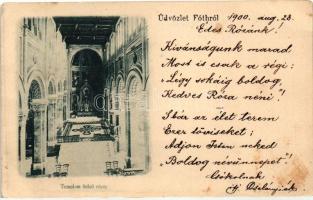 Üdvözlet Fóthról
1900. aug. 28.
Édes Rózánk!
Kivánságunk marad
Most is csak a régi:
"Légy sokáig boldog,
Kedves Róza néni!"
S bár az élet terem
Ezer töviseket;
Adjon Isten neked
"Boldog névünnepet!"
Csókolnak
Templom belső része.